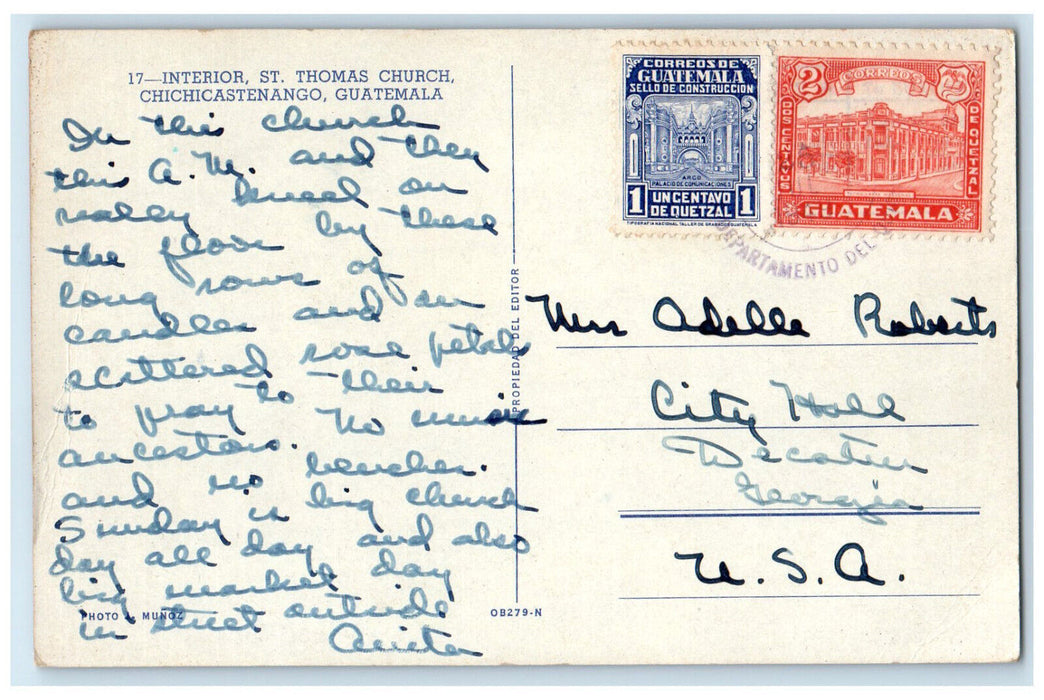 17—INTERIOR, ST. THOMAS CHURCH,
CHICHICASTENANGO, GUATEMALA
In this church
this A.M. and they
really kneel on
the floor by these
long rows of
candles and on
scattered rose petals
to pray to their
ancestors. No music
and no benches.
Sunday is big church
day all day and also
big market day
in street outside
Anita
PHOTO J. MUÑOZ
OB279-N
PROPIEDAD DEL EDITOR
CORREOS DE
GUATEMALA
SELLO DE CONSTRUCCION
ARCO
PALACIO DE COMUNICACIONES
1 UN CENTAVO 1
DE QUETZAL
TIPOGRAFIA NACIONAL TALLER DE GRABADOS GUATEMALA
2 CORREOS 2
DOS CENTAVOS
DE QUETZAL
GUATEMALA
DEPARTAMENTO DEL
Miss Adelle Roberts
City Hall
Decatur
Georgia
U.S.A.